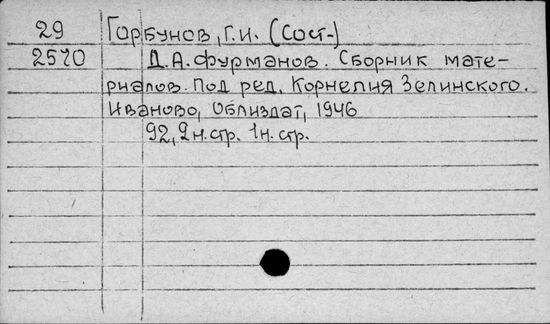 29 Горбунов, Г.И. (Сост-)
2570 Д.А. Фурманов. Сборник мате-
риалов. Под ред. Корнелия Зелинского.
Иваново, Облиздат, 1946
92, 2 н.стр. 1 н. стр.